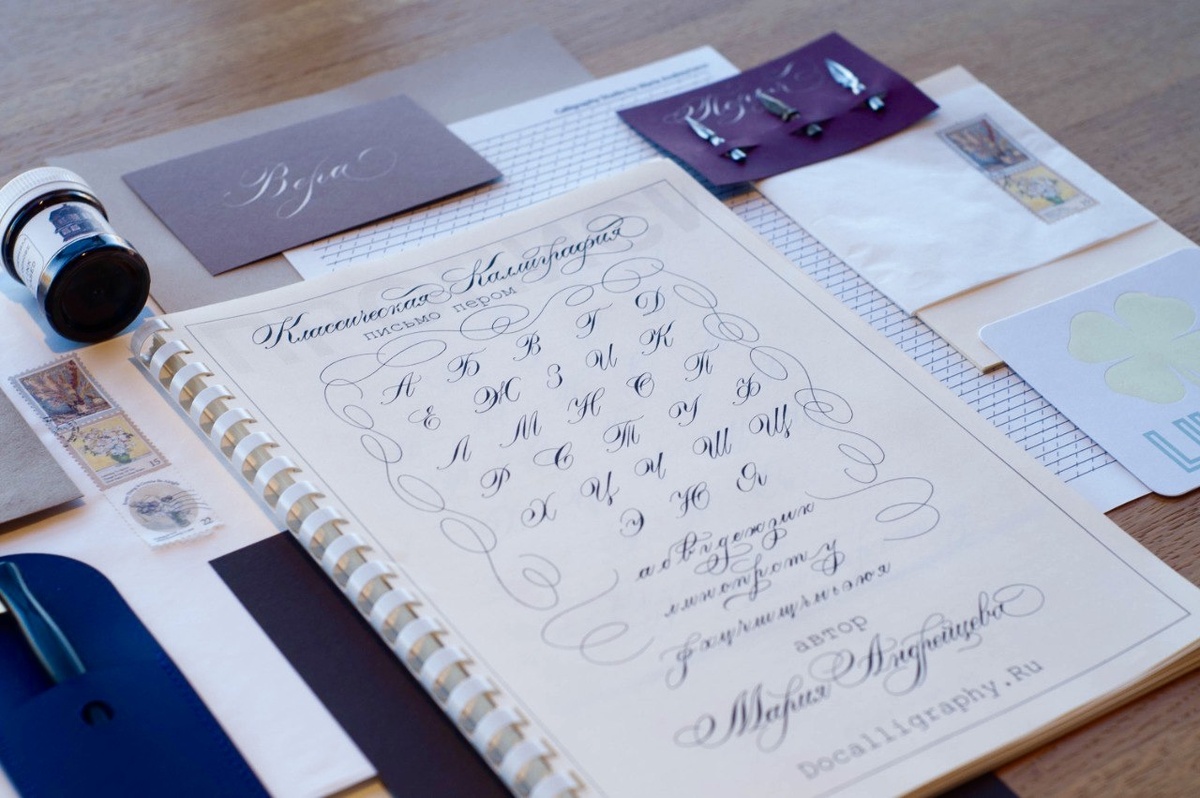 Calligraphy Studio by Maria
Вера
Классическая Каллиграфия
письмо пером
А Б В Г Д
Е Ж З И К
Л М Н О П
Р С Т У Ф
Х Ц Ч Ш Щ
Э Ю Я
абвгдежзик
лмнопрсту
фхцчшщъыьэюя
автор
Мария Андрейцева
Docalligraphy.Ru